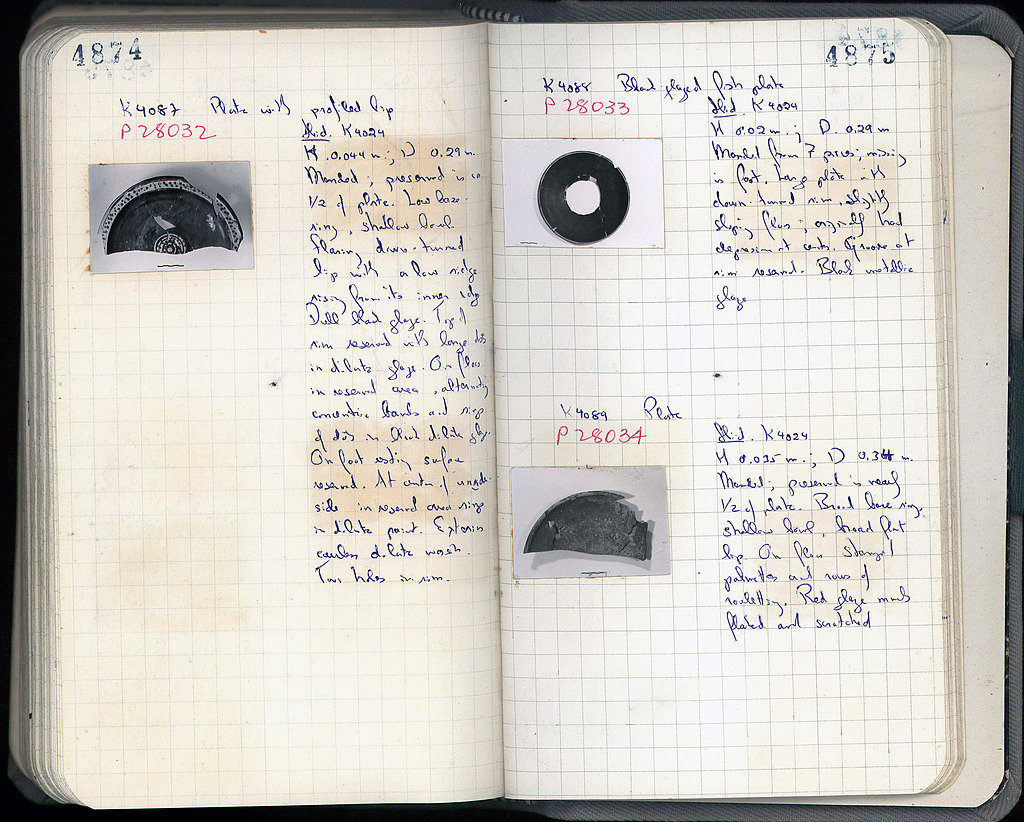 4874
K4087 Plate with profiled lip
P 28032
Ibid. K4024
H 0.044 m.; D 0.29 m.
Mended; preserved is ca
1/2 of plate. Low base-
ring, shallow bowl.
flaring down-turned
lip with a low ridge
rising from its inner edge
Dull black glaze. Top of
rim reserved with large dots
in dilute glaze. On floor
in reserved area, alternating
concentric bands and rings
of dots in black dilute glaze.
On foot resting surface
reserved. At center of under-
side in reserved area rings
in dilute paint. Exterior
careless dilute wash.
Two holes in rim.
4875
K4088 Black glazed fish plate
P 28033
Ibid. K4024
H 0.02 m.; D. 0.29 m
Mended from 7 pieces; missing
is foot. Large plate with
down-turned rim, slightly
sloping floor; originally had
depression at center. Groove at
rim reserved. Black metallic
glaze
K4089 Plate
P 28034
Ibid. K4024
H 0.035 m.; D m.
Mended; preserved is nearly
1/2 of plate. Broad base ring,
shallow bowl, broad flat
lip. On floor stamped
palmettes and rows of
rouletting. Red glaze much
flaked and scratched